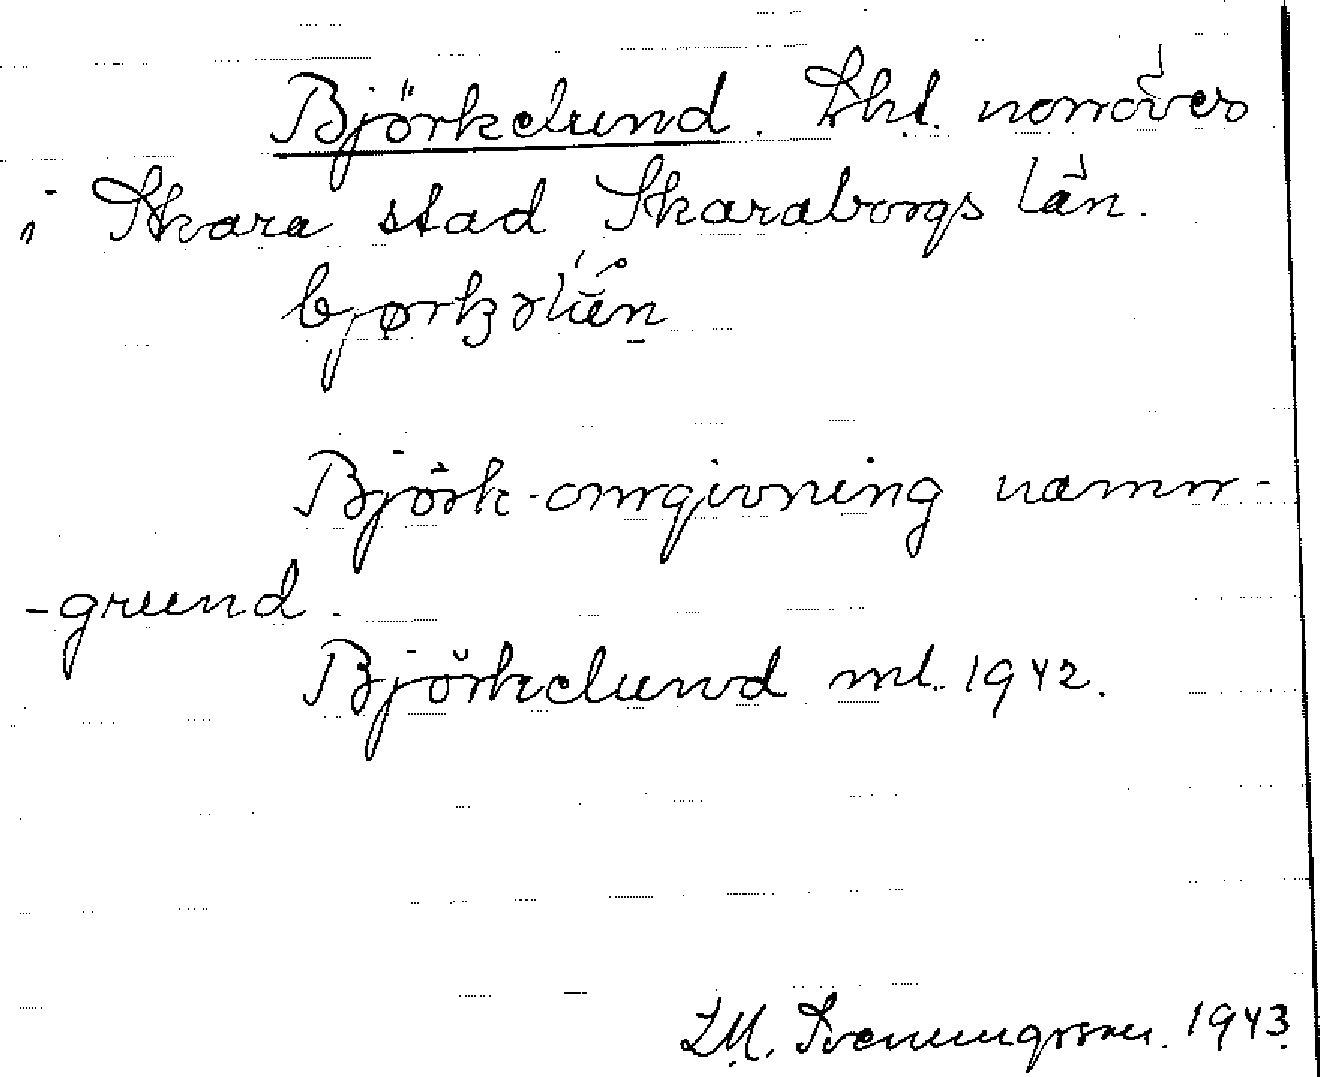 Björkelund. Lht. norröver
i Skara stad Skaraborgs län.
Björk-omgivning namn-
-grund.
Björkelund ml. 1942.
I.M. Svenungsson. 1943.